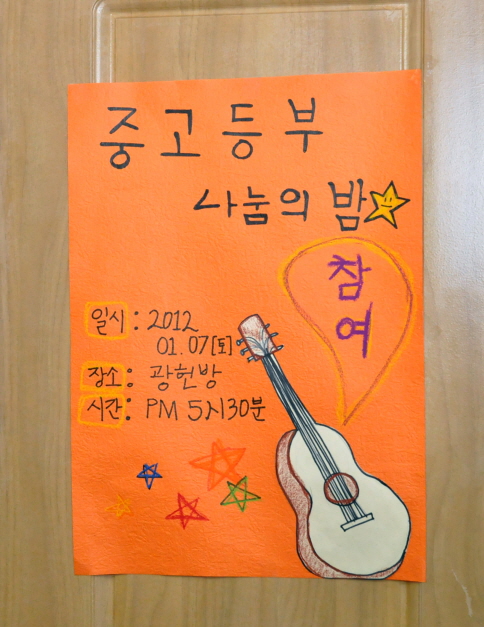 중고등부
나눔의 밤
참
여
일시: 2012
01.07[토]
장소: 광헌방
시간: PM 5시30분